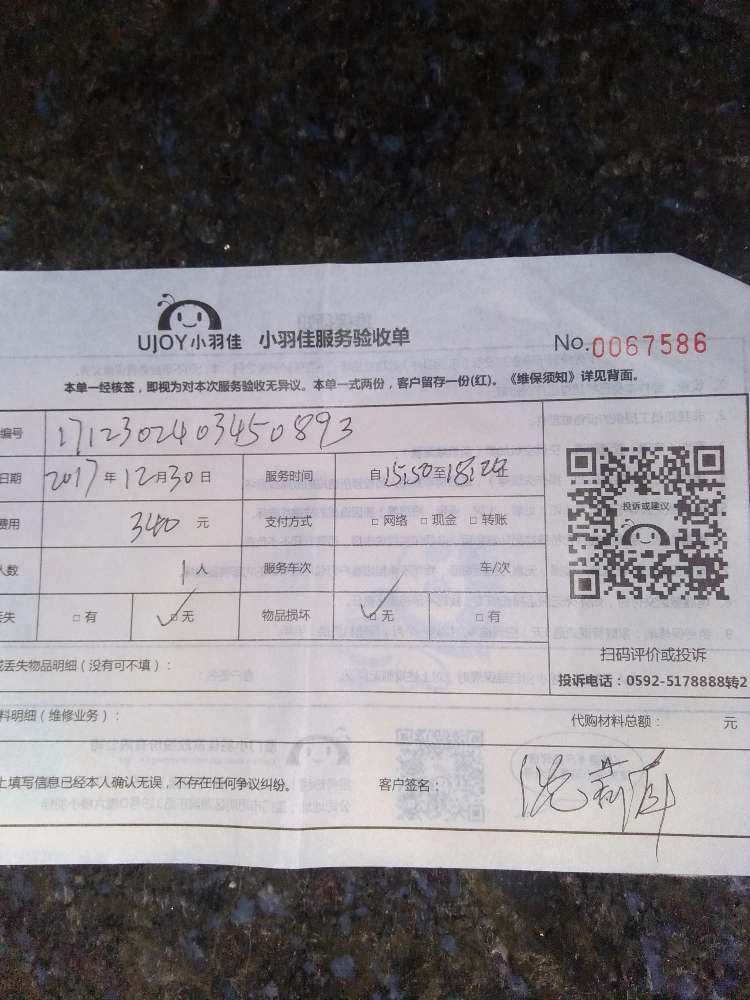 UJOY小羽佳 小羽佳服务验收单 No.0067586
本单一经核签，即视为对本次服务验收无异议。本单一式两份，客户留存一份(红)。《维保须知》详见背面。
编号 1712302403450893
日期 2017年12月30日 服务时间 自15:50至18:20
费用 340元 支付方式 □网络 □现金 □转账
人数 1人 服务车次 车/次
丢失 □有 ✓□无 物品损坏 ✓□无 □有
投诉或建议
扫码评价或投诉
投诉电话：0592-5178888转2
丢失物品明细（没有可不填）：
料明细（维修业务）： 代购材料总额： 元
上填写信息已经本人确认无误，不存在任何争议纠纷。 客户签名：